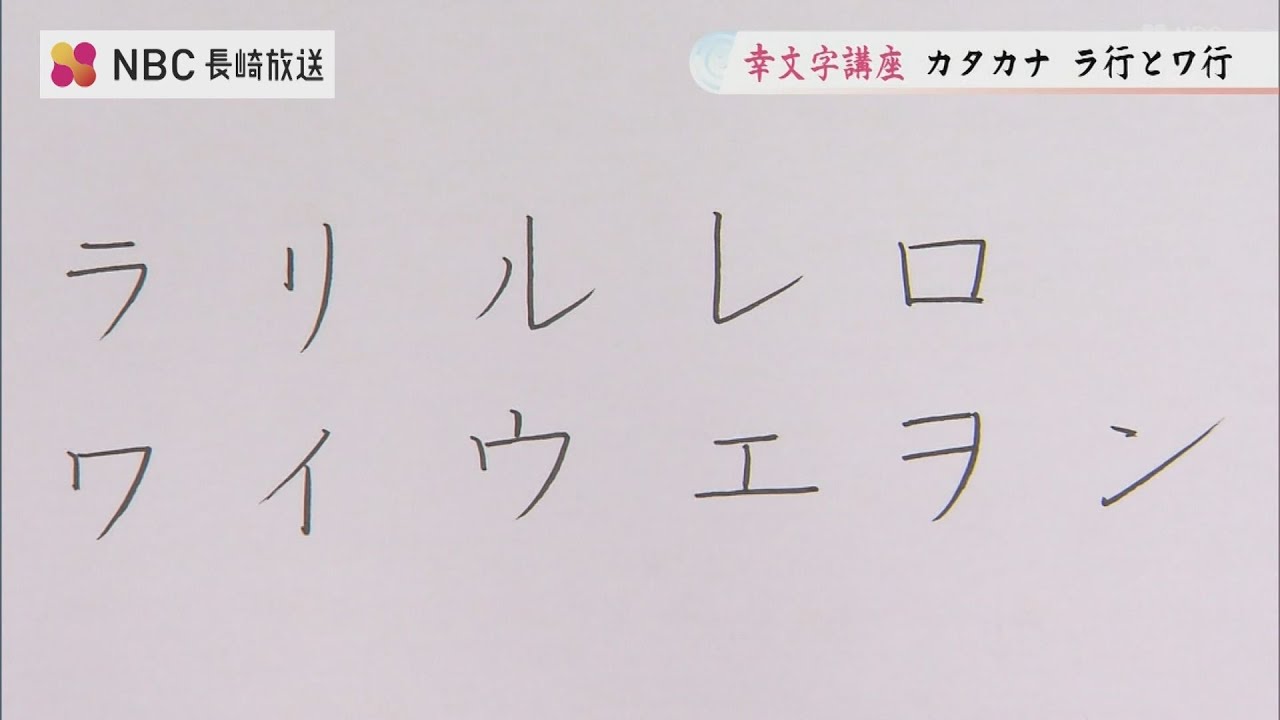 NBC 長崎放送
幸文字講座 カタカナ ラ行とワ行
ラ リ ル レ ロ
ワ イ ウ エ ヲ ン